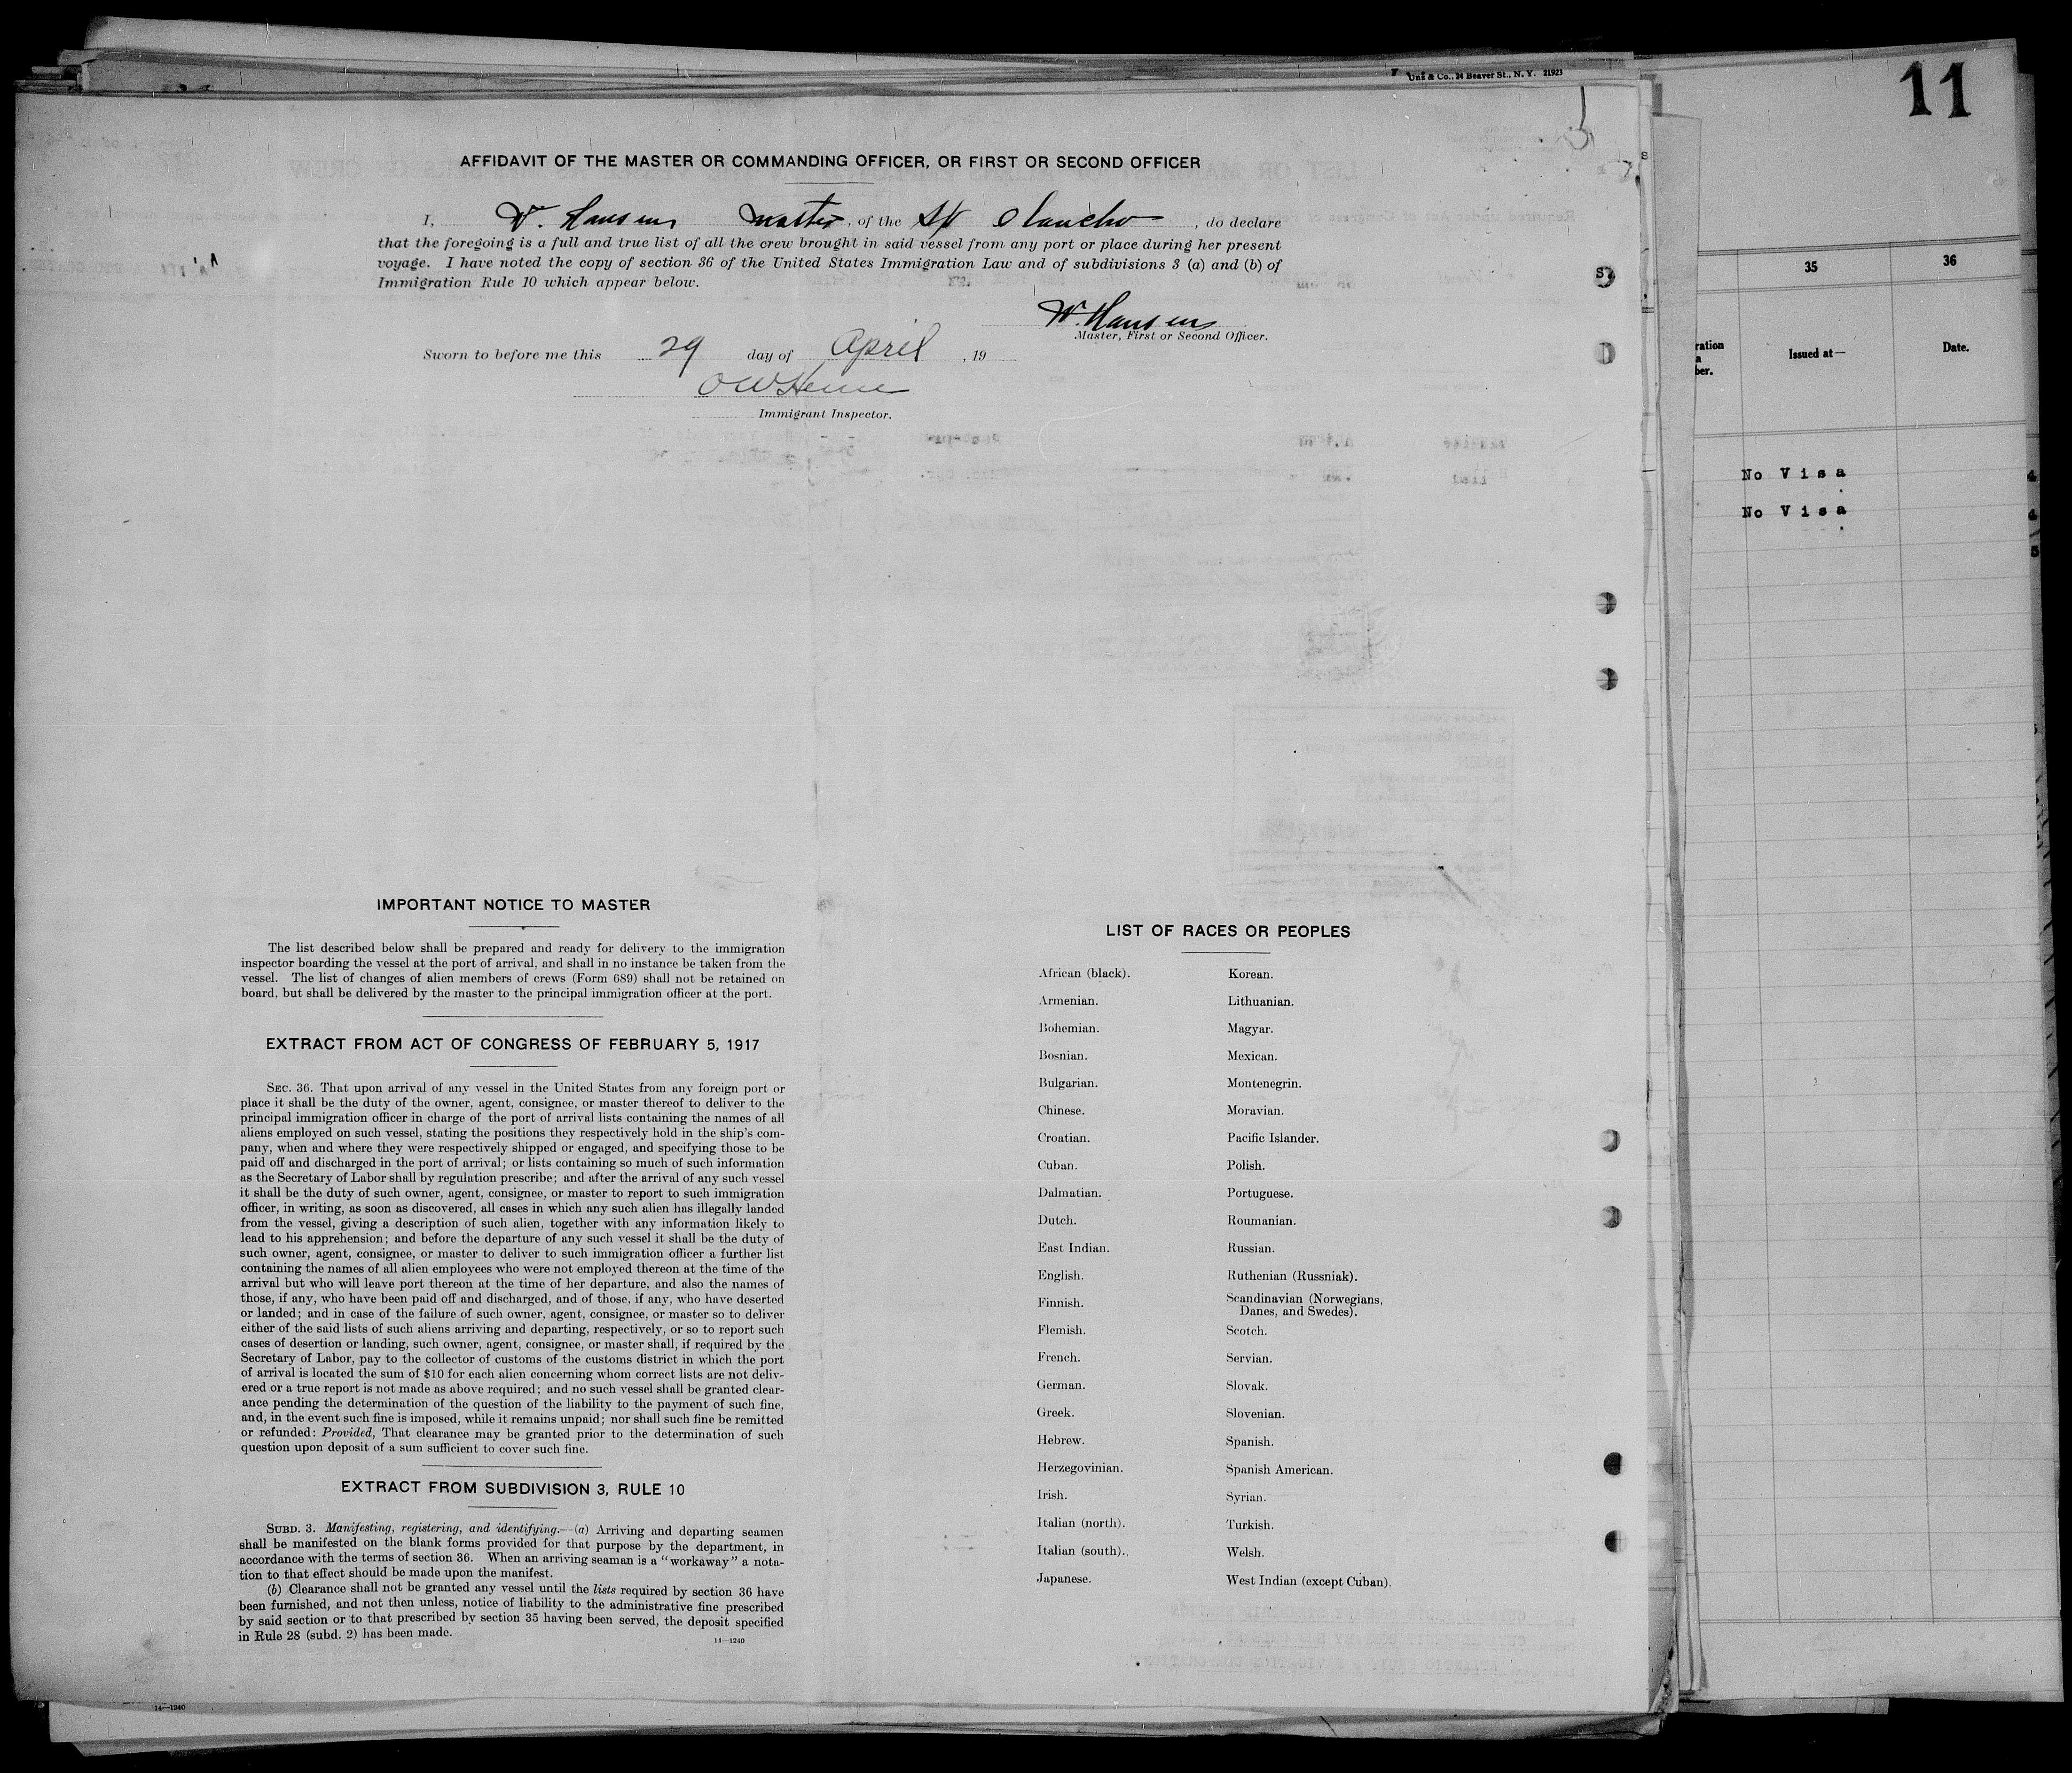 Uns & Co., 24 Beaver St., N. Y. 21923
11
AFFIDAVIT OF THE MASTER OR COMMANDING OFFICER, OR FIRST OR SECOND OFFICER
I, W. Hansens master, of the , do declare
that the foregoing is a full and true list of all the crew brought in said vessel from any port or place during her present
voyage. I have noted the copy of section 36 of the United States Immigration Law and of subdivisions 3 (a) and (b) of
Immigration Rule 10 which appear below.
W. Hansens
Master, First or Second Officer.
Sworn to before me this 29 day of April , 19
Immigrant Inspector.
IMPORTANT NOTICE TO MASTER
The list described below shall be prepared and ready for delivery to the immigration
inspector boarding the vessel at the port of arrival, and shall in no instance be taken from the
vessel. The list of changes of alien members of crews (Form 689) shall not be retained on
board, but shall be delivered by the master to the principal immigration officer at the port.
EXTRACT FROM ACT OF CONGRESS OF FEBRUARY 5, 1917
SEC. 36. That upon arrival of any vessel in the United States from any foreign port or
place it shall be the duty of the owner, agent, consignee, or master thereof to deliver to the
principal immigration officer in charge of the port of arrival lists containing the names of all
aliens employed on such vessel, stating the positions they respectively hold in the ship's com-
pany, when and where they were respectively shipped or engaged, and specifying those to be
paid off and discharged in the port of arrival; or lists containing so much of such information
as the Secretary of Labor shall by regulation prescribe; and after the arrival of any such vessel
it shall be the duty of such owner, agent, consignee, or master to report to such immigration
officer, in writing, as soon as discovered, all cases in which any such alien has illegally landed
from the vessel, giving a description of such alien, together with any information likely to
lead to his apprehension; and before the departure of any such vessel it shall be the duty of
such owner, agent, consignee, or master to deliver to such immigration officer a further list
containing the names of all alien employees who were not employed thereon at the time of the
arrival but who will leave port thereon at the time of her departure, and also the names of
those, if any, who have been paid off and discharged, and of those, if any, who have deserted
or landed; and in case of the failure of such owner, agent, consignee, or master so to deliver
either of the said lists of such aliens arriving and departing, respectively, or so to report such
cases of desertion or landing, such owner, agent, consignee, or master shall, if required by the
Secretary of Labor, pay to the collector of customs of the customs district in which the port
of arrival is located the sum of $10 for each alien concerning whom correct lists are not deliv-
ered or a true report is not made as above required; and no such vessel shall be granted clear-
ance pending the determination of the question of the liability to the payment of such fine,
and, in the event such fine is imposed, while it remains unpaid; nor shall such fine be remitted
or refunded: Provided, That clearance may be granted prior to the determination of such
question upon deposit of a sum sufficient to cover such fine.
EXTRACT FROM SUBDIVISION 3, RULE 10
SUBD. 3. Manifesting, registering, and identifying.—(a) Arriving and departing seamen
shall be manifested on the blank forms provided for that purpose by the department, in
accordance with the terms of section 36. When an arriving seaman is a "workaway" a nota-
tion to that effect should be made upon the manifest.
(b) Clearance shall not be granted any vessel until the lists required by section 36 have
been furnished, and not then unless, notice of liability to the administrative fine prescribed
by said section or to that prescribed by section 35 having been served, the deposit specified
in Rule 28 (subd. 2) has been made.
14—1240
14—1240
LIST OF RACES OR PEOPLES
African (black). Korean.
Armenian. Lithuanian.
Bohemian. Magyar.
Bosnian. Mexican.
Bulgarian. Montenegrin.
Chinese. Moravian.
Croatian. Pacific Islander.
Cuban. Polish.
Dalmatian. Portuguese.
Dutch. Roumanian.
East Indian. Russian.
English. Ruthenian (Russniak).
Finnish. Scandinavian (Norwegians,
Danes, and Swedes).
Flemish. Scotch.
French. Servian.
German. Slovak.
Greek. Slovenian.
Hebrew. Spanish.
Herzegovinian. Spanish American.
Irish. Syrian.
Italian (north). Turkish.
Italian (south). Welsh.
Japanese. West Indian (except Cuban).
35 36
ration
a
ber. Issued at— Date.
No Visa
No Visa